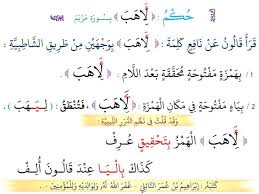 حُكْمُ: ﴿ لِأَهَبَ ﴾ بِسُورَةِ مَرْيَمَ
قَرَأَ قَالُونُ عَنْ نَافِعٍ كَلِمَةَ: ﴿ لِأَهَبَ ﴾ بِوَجْهَيْنِ مِنْ طَرِيقِ الشَّاطِبِيَّةِ:
1/ بِهَمْزَةٍ مَفْتُوحَةٍ مُحَقَّقَةٍ بَعْدَ اللَّامِ: ﴿ لِأَهَبَ ﴾.
2/ بِيَاءٍ مَفْتُوحَةٍ فِي مَكَانِ الْهَمْزَةِ: ﴿ لِأَهَبَ ﴾، فَتُنْطَقُ: ( لِيَـهَبَ ).
وَقَدْ قُلْتُ فِي نَظْمِ الدُّرَرِ اللَّيْبِيَّةِ:
﴿ لِأَهَبَ ﴾ الْهَمْزُ بِتَحْقِيقٍ عُرِفْ
كَذَاكَ بِالْيَـا عِنْدَ قَالُونَ أُلِفْ